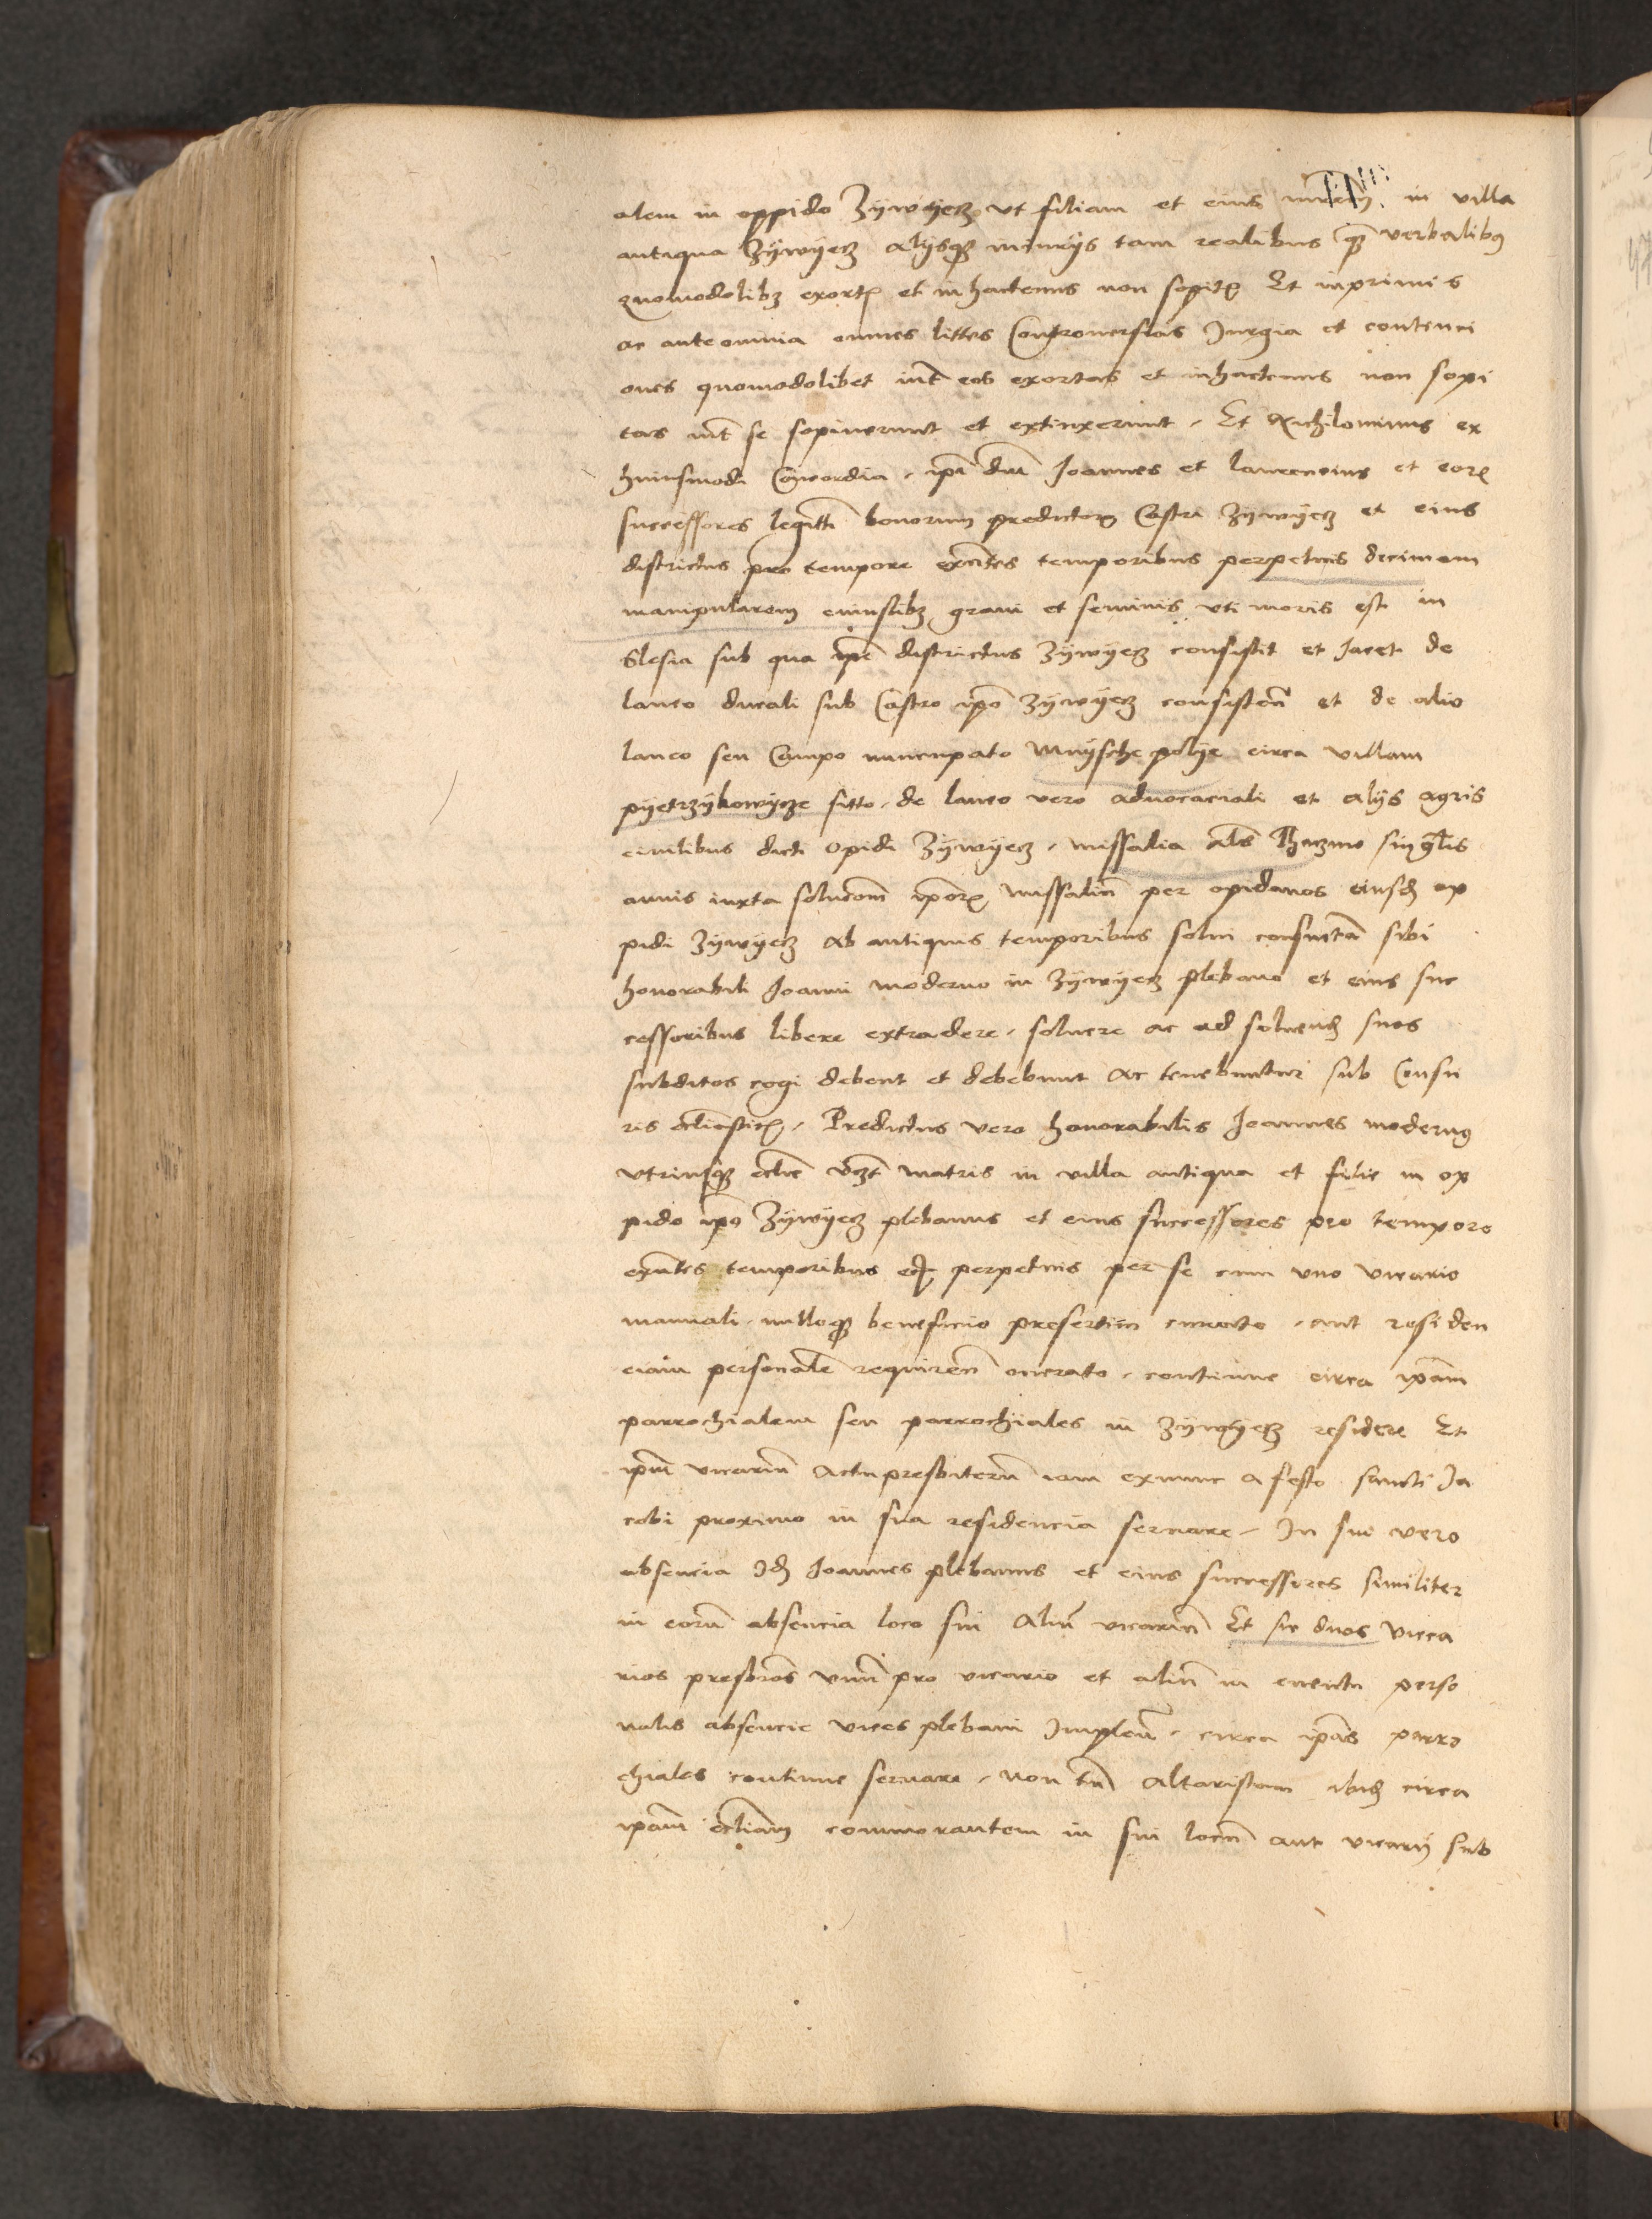 alem in oppido Zÿwÿecz vt filiam et eius mrem in villa
antiqua Zÿwÿecz alÿsqȝ iniurÿs tam realibus qȝ verbalibꝯ
quomodolibȝ exortꝭ et inhactenus non sopitꝭ Et inprimis
ac anteomnia omnes littes Controuersias Jurgia et contenci
ones quomodolibet int eos exortas et inhactenus non sopi
tas int se sopiuerunt et extinxerunt / Et Nichilominus ex
huiusmodi Concordia / ipi dni Joannes et laurencius et eorꝭ
successores legitti bonorum predictorꝭ Castri Zÿwÿecz et eius
districtus pro tempore exntes temporibus perpetuis decimam
manipularem cuiuslibȝ grani et seminis vti moris est in
Slesia sub qua ipe districtus Zÿwÿecz consistit et Jacet de
laneo ducali sub Castro ipo Zÿwÿecz consisten et de alio
laneo seu Campo nuncupato Mnÿsche polÿe circa villam
pÿetrzÿkowÿcze sitto / de laneo vero aduocaciali et alÿs agris
ciuilibus dicti opidi Zÿwÿecz / missalia als singlis
annis iuxta solucom iporꝭ missaliu per opidanos eiusd op
pidi Zÿwÿecz ab antiquis temporibus solui consueta sibi
honorabili Joanni moderno in Zÿwÿecz plebano et eius suc
cessoribus libere extradere / soluere ac ad soluend suos
subditos cogi debent et debebunt ac tenebuntur sub Censu
ris ecliasticꝭ / Predictus vero honorabilis Joannes modernꝯ
vtriusqȝ eclie vȝt matris in villa antiqua et filie in op
pido ipo Zÿwÿecz plebanus et eius successores pro tempore
exntes temporibus perpetuis per se cum vno vicario
manuali / nulloqȝ beneficio presertim curato / aut residen
ciam personale requiren onerato / continue circa ipam
parrochialem seu parrochiales in Zÿwÿecz residere Et
ipm vicariu actu presbiteru iam exnunc a festo sancti Ja
cobi proximo in sua residencia seruare / In sui vero
absencia Id Joannes plebanus et eius successores similiter
in eoru absencia loco sui aliu vicariu Et sic duos vica
rios presbros vnu pro vicario et aliu in euentu perso
nalis absencie vices plebani Implen / circa ipas parro
chiales continue seruare / non tn altaristam ibid circa
ipam ecliam commorantem in sui locu aut vicarÿ sub